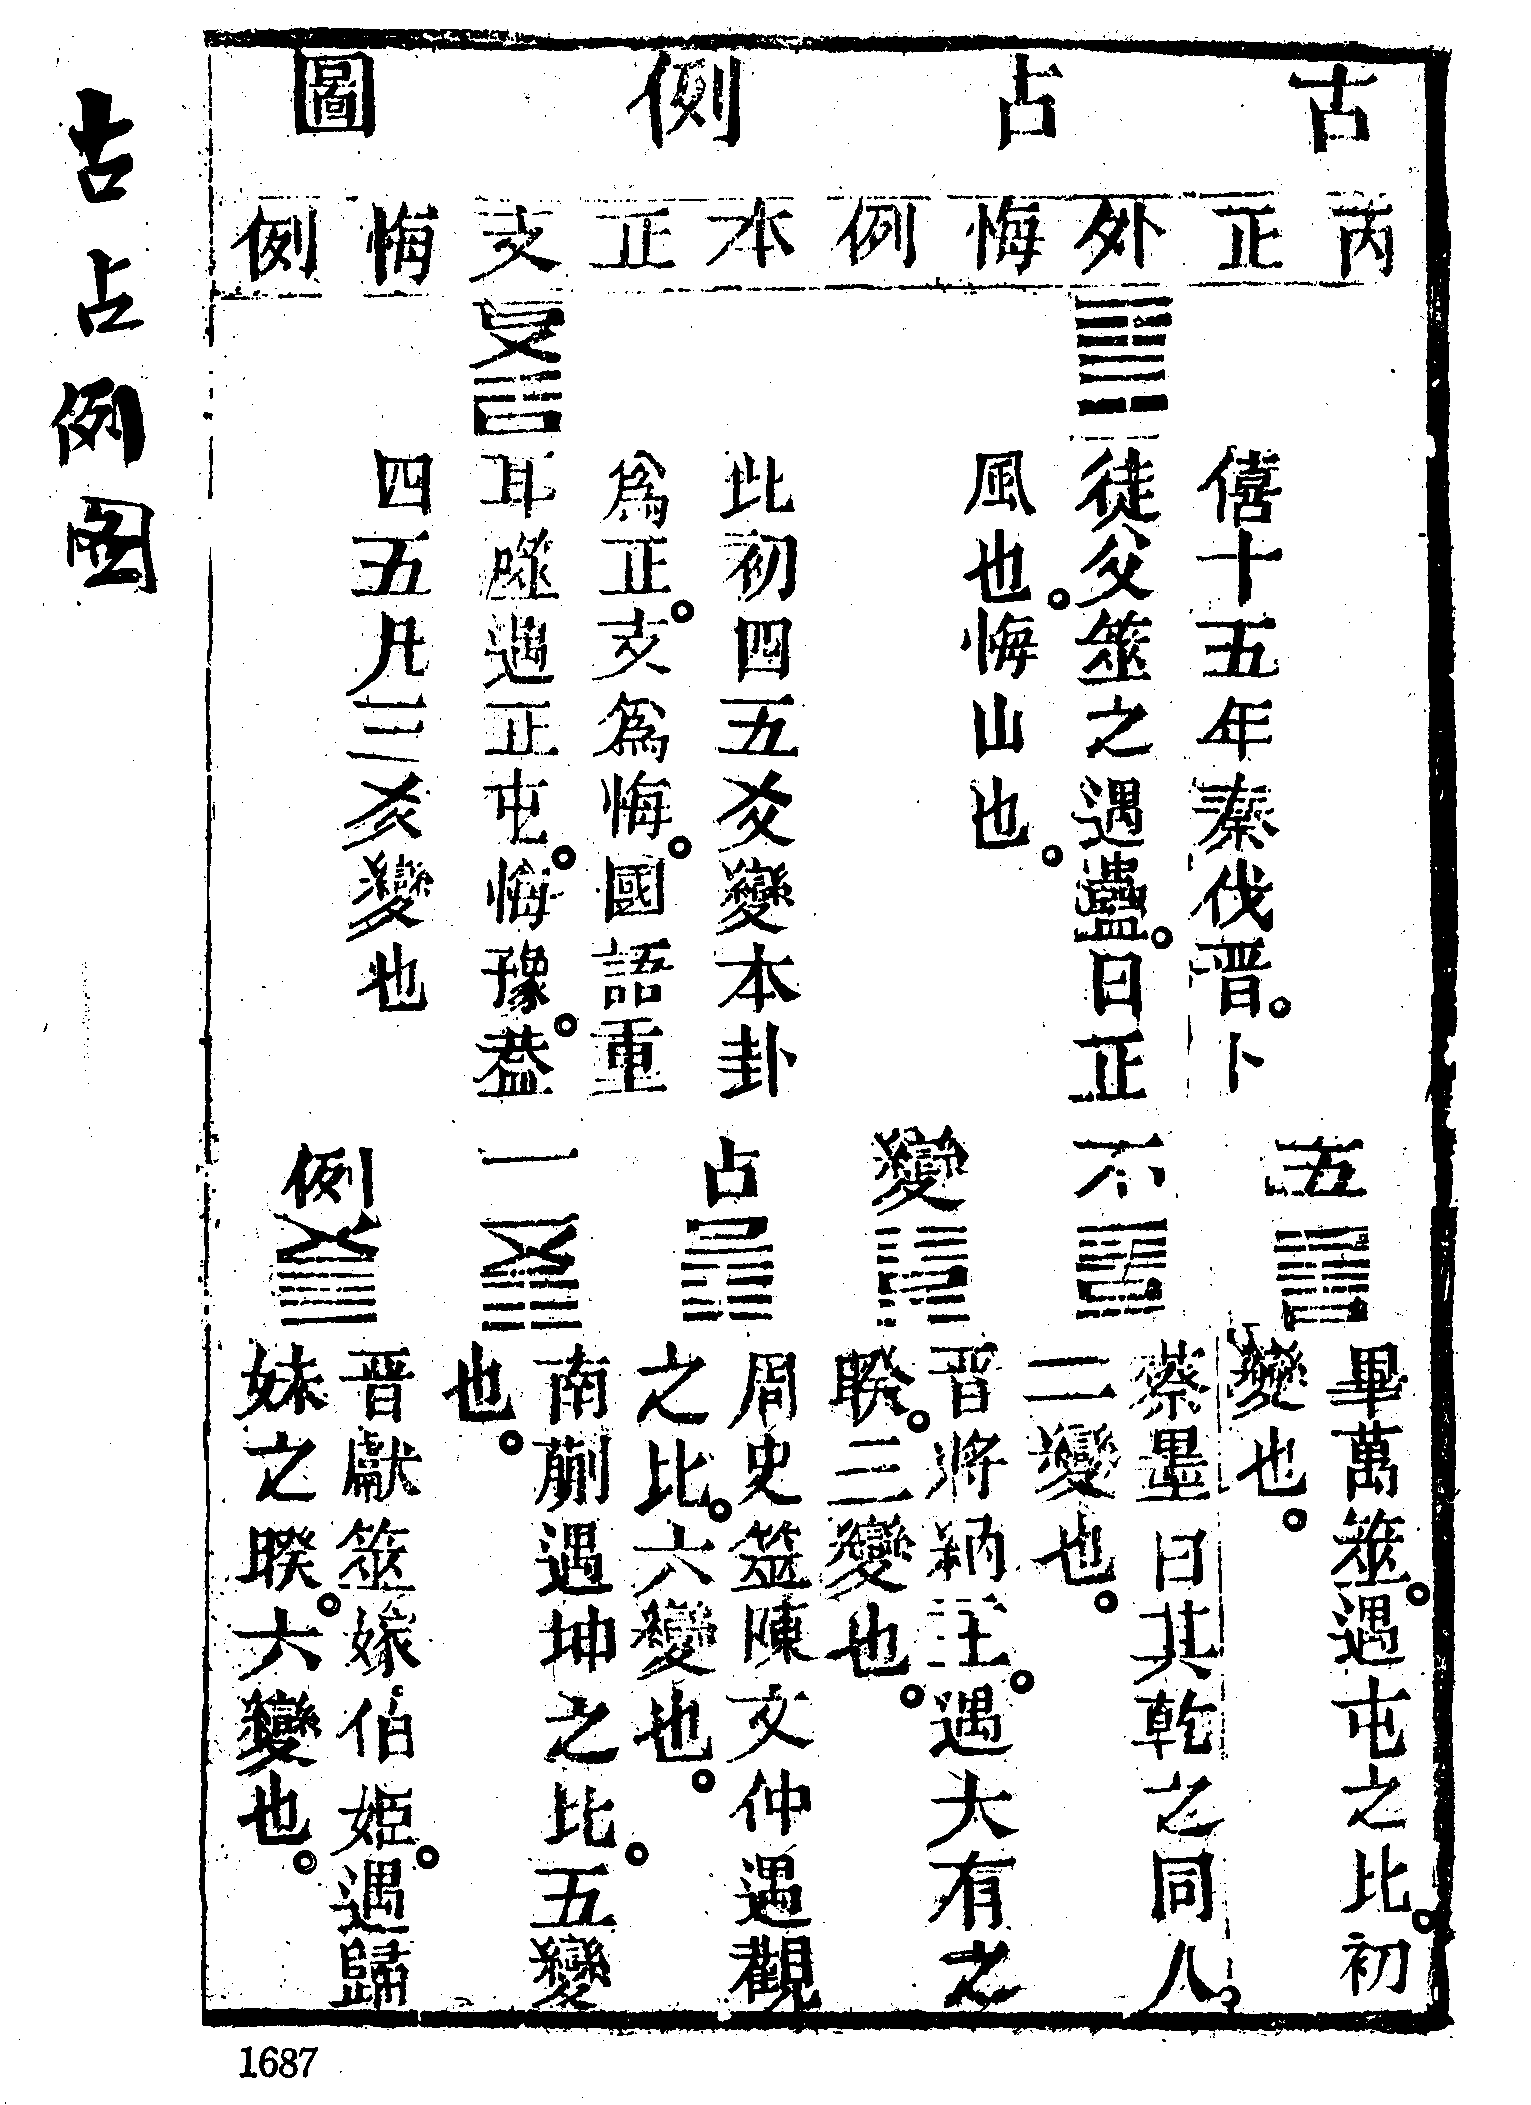 古占例圖
古占例图
丙正外悔例
本正支悔例
僖十五年秦伐晋。卜
徒父筮之遇蠱。曰正
風也。悔山也。
此初四五爻變本卦
爲正。支爲悔。國語重
耳筮遇正屯。悔豫。葢
四五凡三爻變也
五不變占一例
畢萬筮。遇屯之比。初
變也。
蔡墨曰其乾之同人。
二變也。
晋將納王。遇大有之
睽。三變也。
周史筮陳文仲遇觀
之比。六變也。
南蒯遇坤之比。五變
也。
晋獻筮嫁伯姬。遇歸
妹之睽。六變也。
1687